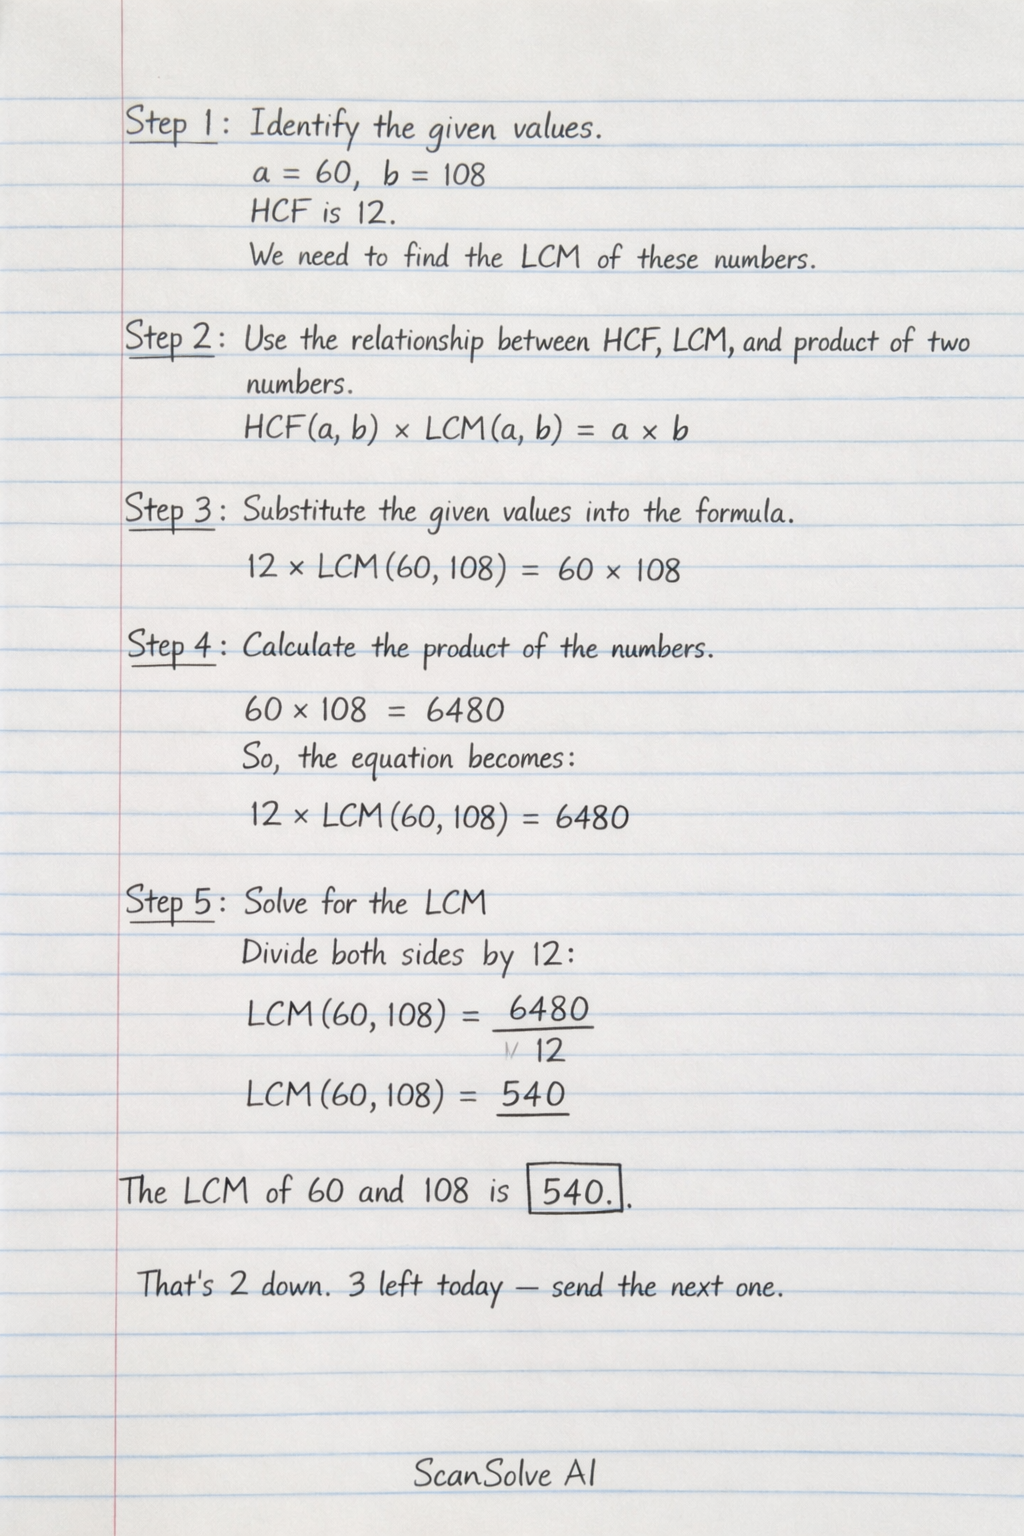 Step 1: Identify the given values.
a = 60, b = 108
HCF is 12.
We need to find the LCM of these numbers.
Step 2: Use the relationship between HCF, LCM, and product of two
numbers.
HCF(a, b) × LCM(a, b) = a × b
Step 3: Substitute the given values into the formula.
12 × LCM(60, 108) = 60 × 108
Step 4: Calculate the product of the numbers.
60 × 108 = 6480
So, the equation becomes:
12 × LCM(60, 108) = 6480
Step 5: Solve for the LCM
Divide both sides by 12:
LCM(60, 108) = 6480
12
LCM(60, 108) = 540
The LCM of 60 and 108 is 540..
That's 2 down. 3 left today — send the next one.
ScanSolve AI